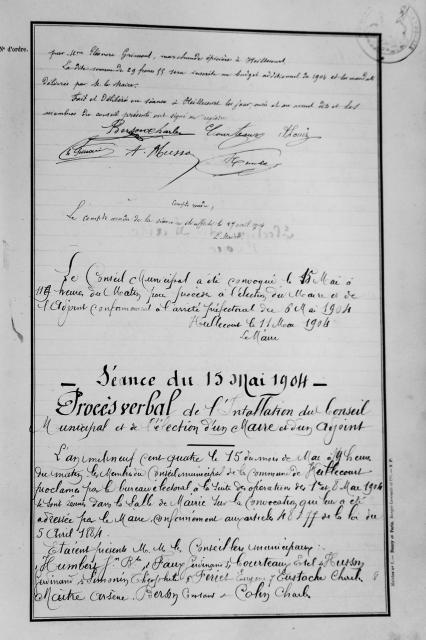 N° d'ordre.
par Mme Eléonore Grimont, marchande épicière à Heillecourt.
La dite somme de 29 francs 55 sera inscrite au budget additionnel de 1904 et les mandats
délivrés par M. le Maire.
Fait et délibéré en séance à Heillecourt les jour, mois et an avant dits et les
membres du conseil présents ont signé au registre
Berson Charles Courteaux
A. Husson
Compte rendu,
Le compte rendu de la séance a été affiché le 17 avril 1904
Le Maire
Le Conseil Municipal a été convoqué le 15 Mai à
heures du Matin pour procéder à l'élection du Maire et de
l'Adjoint conformément à l'arrêté préfectoral du 6 Mai 1904
Heillecourt le 11 Mai 1904
Le Maire
— Séance du 15 Mai 1904 —
Procès verbal de l'Installation du Conseil
Municipal et de l'élection d'un Maire et d'un Adjoint
L'an mil neuf cent quatre le 15 du mois de Mai à heures
du matin, les Membres du Conseil municipal de la commune de Heillecourt
proclamés par le bureau électoral à la suite des opérations des 1er & 8 Mai 1904
se sont réunis dans la Salle de Mairie sur la Convocation qui leur a été
adressée par le Maire conformément aux articles 48 & 77 de la loi du
5 Avril 1884.
Etaient présents M. M. les Conseillers municipaux
Humbert J. Bte Fauy Courteau Husson
Simonin Ferriet Eugène Eustache Charles
Maître Arsène Berson Constant Colin Charles